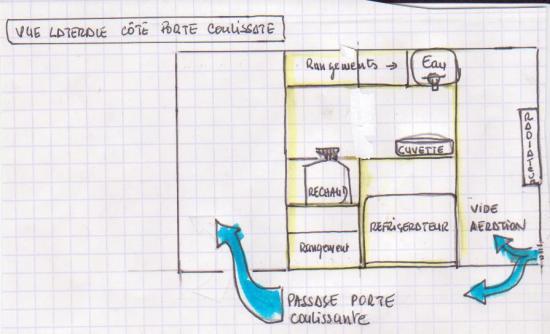 VUE LATERALE CÔTÉ PORTE COULISSATE
Rangements →
Eau
CUVETTE
RADIATEUR
RECHAUD
REFRIGERATEUR
VIDE
AERATION
Rangement
PASSAGE PORTE
coulissante